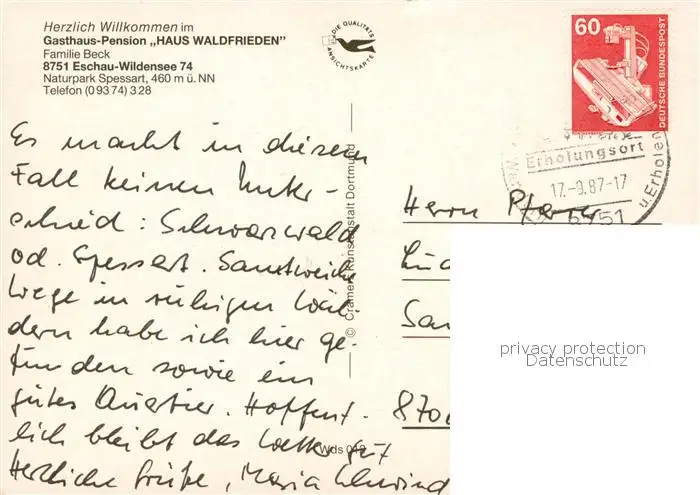 Herzlich Willkommen im
Gasthaus-Pension „HAUS WALDFRIEDEN"
Familie Beck
8751 Eschau-Wildensee 74
Naturpark Spessart, 460 m ü. NN
Telefon (0 93 74) 3 28
DIE QUALITÄTS
ANSICHTSKARTE
60
DEUTSCHE BUNDESPOST
Erholungsort
17.-9.87-17
u. Erholen
8751
Es macht in diesem
Fall keinen Unter-
schied: Schwarzwald
od. Spessart. Samtweiche
Wege in ruhigen Wäl-
dern habe ich hier ge-
funden sowie ein
gutes Quartier. Hoffent-
lich bleibt das Wetter gut
Herzliche Grüße, Maria
© Cramers Kunstanstalt Dortmund
Wds
Herrn Pfarrer
870
privacy protection
Datenschutz